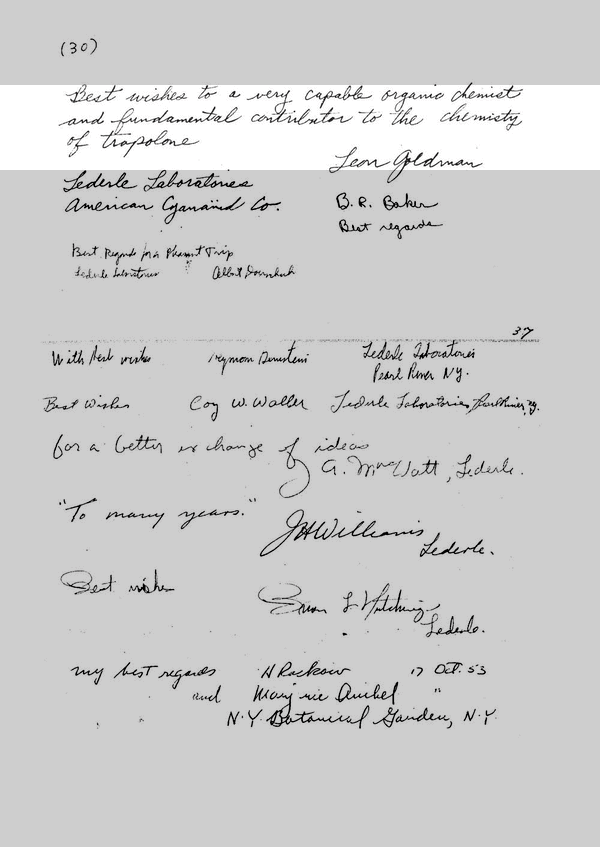 (30)
Best wishes to a very capable organic chemist
and fundamental contributor to the chemisty
of tropolone
Leon Goldman
Lederle Laboratories
American Cyanamid Co.
B. R. Baker
Best regards
Best Regards for a Pleasant Trip
Lederle Laboratories Albert
37
With best wishes Seymour Bernstein Lederle Laboratories
Pearl River N.Y.
Best Wishes Coy W. Waller Lederle Laboratories, Pearl River, N.Y.
for a better exchange of ideas
G. Lederle.
"To many years."
JHWilliams
Lederle.
Best wishes
L Hutchings
Lederle.
my best regards H Raskow 17 Oct. 53
and Marjorie Anchel "
N.Y. Botanical Garden, N.Y.